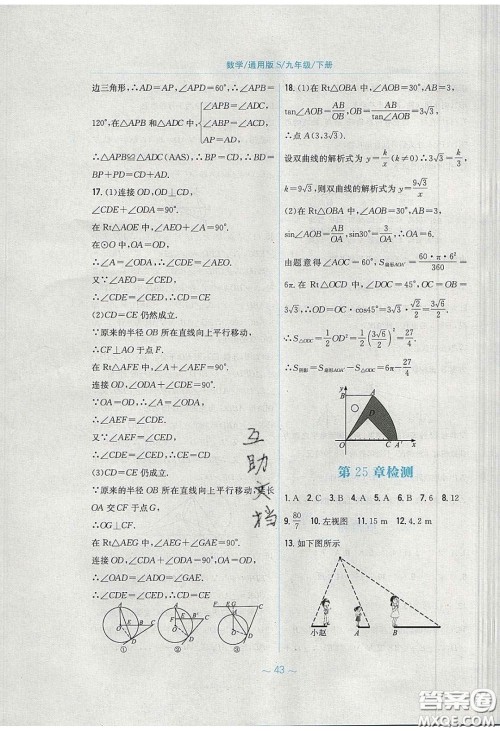 数学/通用版.S/九年级/下册
边三角形,∴AD=AP,∠APD=60°,∴∠APB=
∠ABP=∠ADC
120°,在△APB和△ADC中,∠APB=∠ADC
AP=AD
∴△APB≌△ADC(AAS),∴BP=CD,
又∵PA=PD,∴PC=BP+AP.
17. (1)连接OD,OD⊥CD,
∠CDE+∠ODA=90°.
在Rt△AOE中,∠AEO+∠A=90°.
在⊙O中,OA=OD,
∴∠A=∠ODA,∴∠CDE=∠AEO.
又∵∠AEO=∠CED,∴CD=CE
(2)CD=CE仍然成立.
∵原来的半径OB所在直线向上平行移动,
∴CF⊥AO于点F.
在Rt△AFE中,∠A+∠AEF=90°.
连接OD,∠ODA+∠CDE=90°,
∵OA=OD,∴∠A=∠ODA,
∴∠AEF=∠CDE.
又∵∠AEF=∠CED,∴CD=CE
(3)CD=CE仍成立.
∵原来的半径OB所在直线向上平行移动,
OA交CF于点
∴OG⊥CF.
在Rt△AEG中,∠AEG+∠GAE=90°.
连接OD,有∠CDA+∠ODE=90°,
∴∠OAD=∠ADO=∠GAE,
∴∠CDE=∠AEG,∴CD=CE
① ② ③
18. (1)在Rt△OBA中,∠AOB=30°,OB=3,
tan∠AOB=AB/OB,∴AB=OB·tan30°=3√3,
∴点A(3,3√3).
设双曲线的解析式为y=k/x(k≠0)∴3√3=k/3,
k=9√3,则双曲线的解析式为y=9√3/x
(2)在Rt△OBA中,∠AOB=30°,AB=3,
sin∠AOB=AB/OA,sin30°=3/OA,∴OA=6.
由题意得∠AOC=60°,S扇形AOA'=60·π·6²/360=6π
∴OD=OC·cos45°=3√3·√2/2=3√6/2,
∴S△ODC=1/2OD²=1/2(3√6/2)²=27/4
∴S阴影=S扇形AOA'-S△ODC=6π-27/4
y
B A
D
O C A' x
第25章检测
1. A 2. C 3. B 4. A 5. B 6. B 7. 6 8. 12
9. 80/7 10. 左视图 11. 15 m 12. 4.2 m
13. 如下图所示
小赵 A B
互助文档
~ 43 ~
答案圈
MXQE.COM